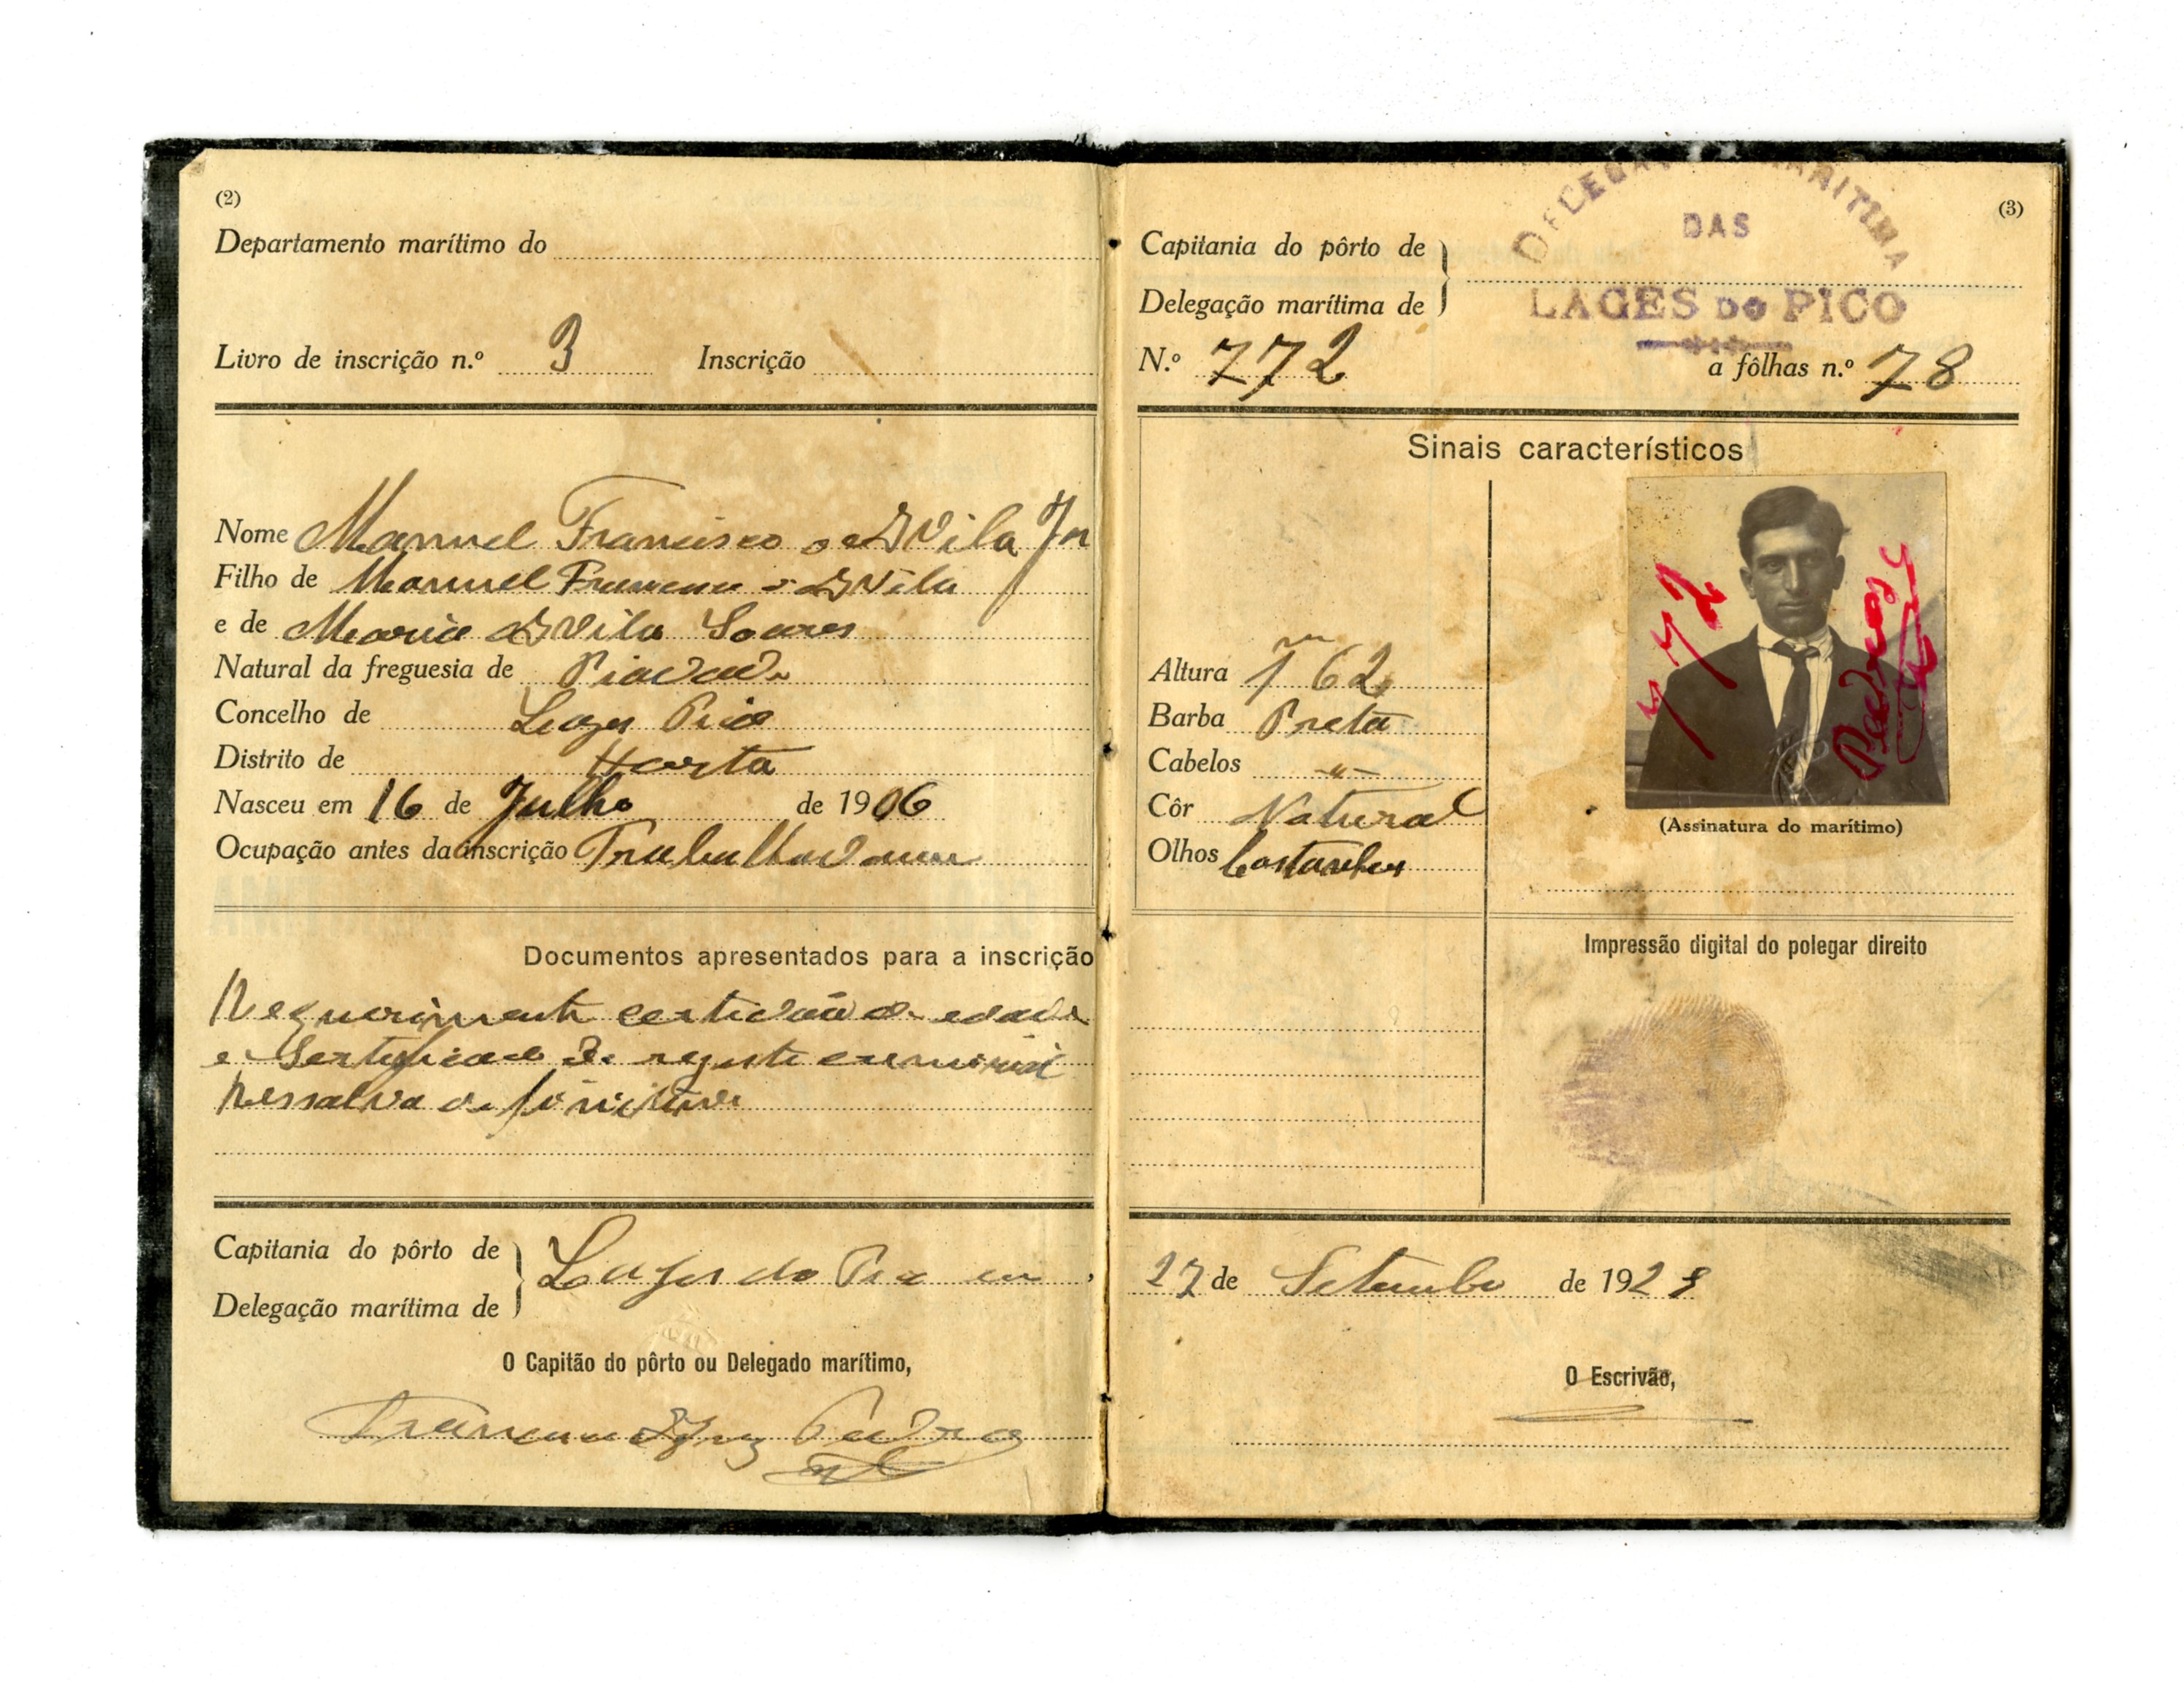 (2)
Departamento marítimo do
Livro de inscrição n.º 3 Inscrição
Nome Manuel Francisco d'Avila Jor
Filho de Manuel Francisco d'Avila
e de Maria d'Avila Soares
Natural da freguesia de Piedade
Concelho de Lages Pico
Distrito de Horta
Nasceu em 16 de Julho de 1906
Ocupação antes da inscrição Trabalhador
Documentos apresentados para a inscrição
Requerimento certidão de edade
e Certificado de registo criminal
Ressalva
Capitania do pôrto de
Delegação marítima de
Lages do Pico em
O Capitão do pôrto ou Delegado marítimo,
Francisco
(3)
DELEGAÇÃO MARITIMA
DAS
LAGES DO PICO
Capitania do pôrto de
Delegação marítima de
N.º 772 a fôlhas n.º 78
Sinais característicos
Altura 1m 62
Barba Preta
Cabelos -"-
Côr Natural
Olhos Castanhos
772
(Assinatura do marítimo)
Impressão digital do polegar direito
27 de Setembro de 1928
O Escrivão,